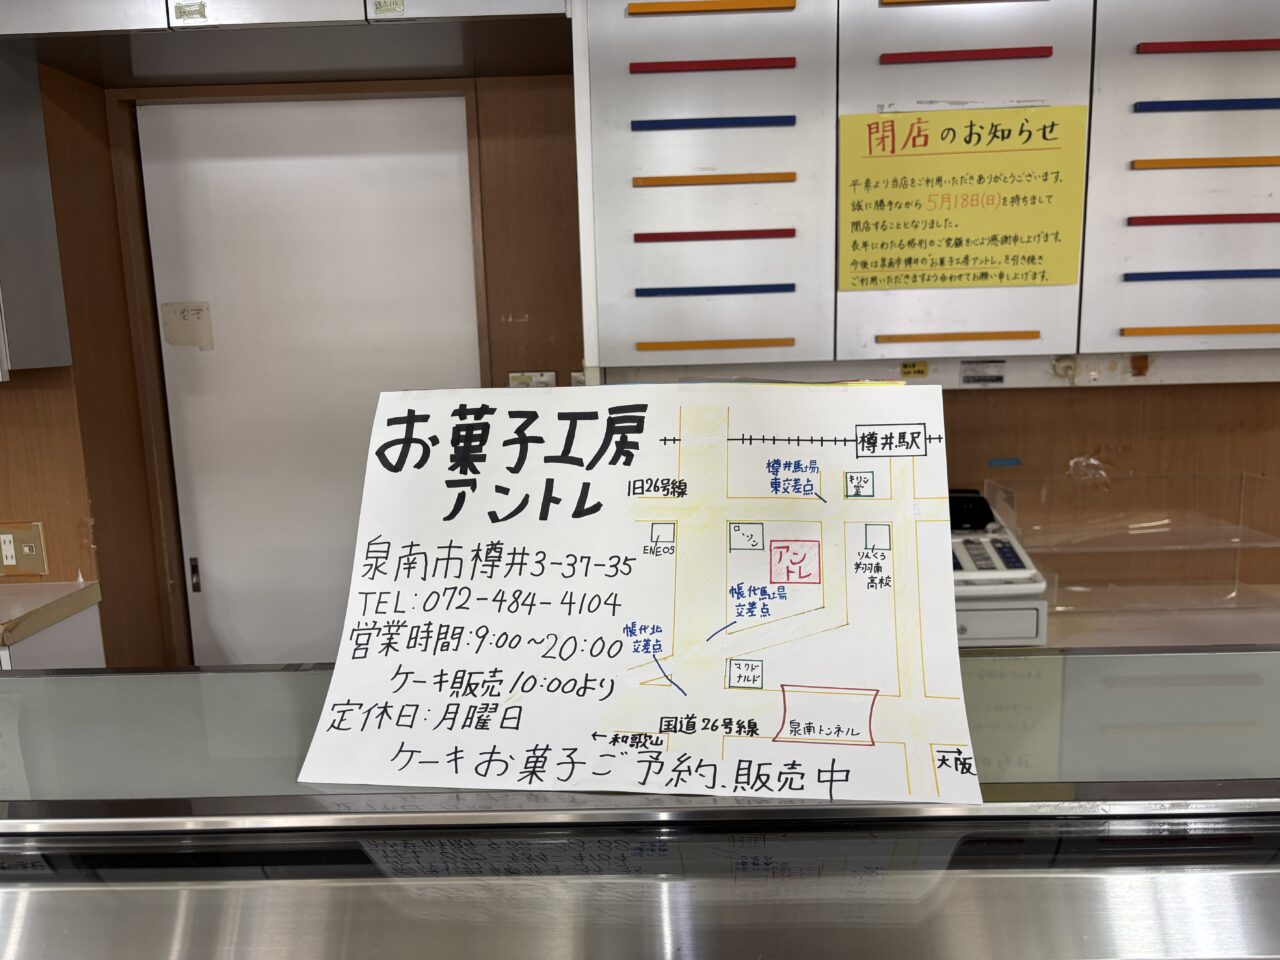 閉店のお知らせ
平素より当店をご利用いただきありがとうございます。
誠に勝手ながら 5月18日(日)を持ちまして
閉店することとなりました。
長年にわたる格別のご愛顧を心より感謝申し上げます。
今後は泉南市樽井の「お菓子工房アントレ」を引き続き
ご利用いただきますよう合わせてお願い申し上げます。
お菓子工房
アントレ
泉南市樽井3-37-35
TEL:072-484-4104
営業時間:9:00~20:00
ケーキ販売10:00より
定休日:月曜日
ケーキお菓子ご予約、販売中
樽井駅
旧26号線
樽井馬場
東交差点
キリン
堂
ENEOS
ローソン
アン
トレ
りんくう
翔南
高校
帳代馬場
交差点
帳代北
交差点
マクド
ナルド
国道26号線
泉南トンネル
←和歌山
→
大阪